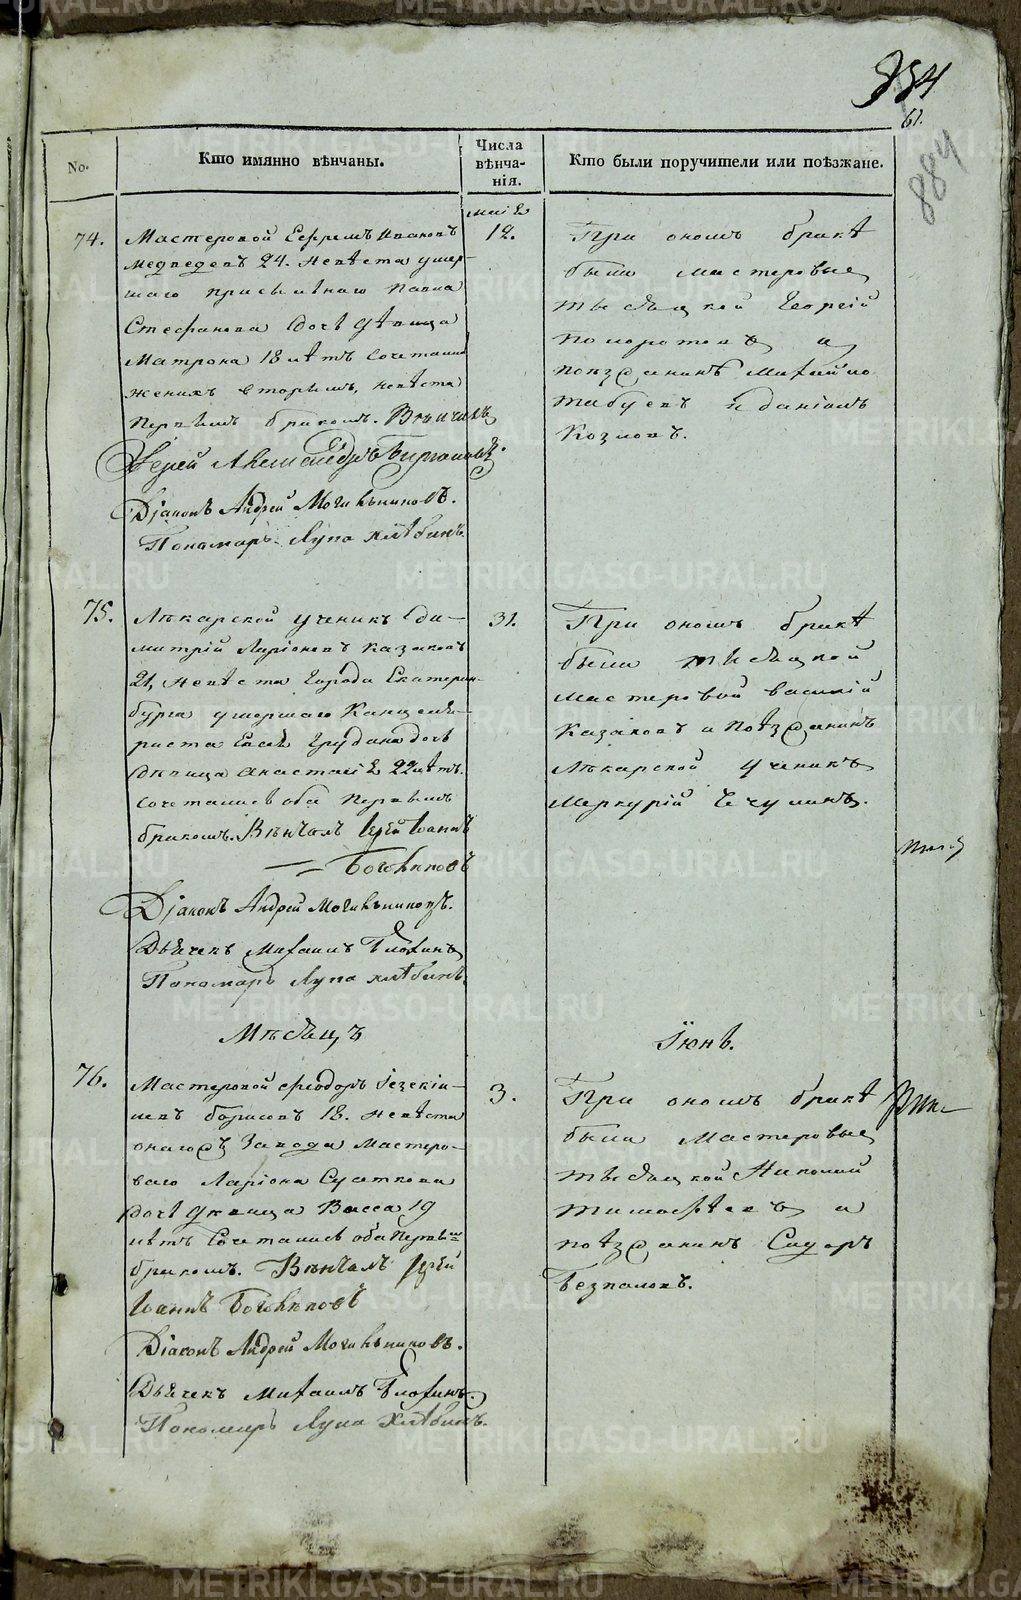 884
61.
884
No.
Кто имянно вѣнчаны.
Числа вѣнча-нія.
Кто были поручители или поѣзжане.
маія
74.
Мастеровой Ефремъ Ивановъ
Медведевъ 24. невѣста умер-
шаго присыльнаго Павла
Стефанова дочь дѣвица
Матрона 18 лѣтъ сочетались
женихъ вторымъ, невѣста
первымъ бракомъ. Вѣнчалъ
Іерей Александръ
Діаконъ Андрей
Пономарь Лупа Хлѣбинъ.
12.
При ономъ бракѣ
были мастеровые
тысяцкой Георгій
и
поезжанинъ Михайло
и Даніилъ
Козловъ.
75.
Лѣкарской ученикъ Ди-
митрій Ларіоновъ Казаковъ
21, невѣста города Екатерин-
бурга умершаго Канцеля-
риста дочь
дѣвица Анастасія 22 лѣтъ.
сочетались оба первымъ
бракомъ. Вѣнчалъ Іерей Іоаннъ
Діаконъ Андрей
Дьячекъ Михаилъ
Пономарь Лупа Хлѣбинъ.
31.
При ономъ бракѣ
были тысяцкой
мастеровой Василій
Казаковъ и поѣзжанинъ
Лѣкарской ученикъ
Меркурій Чечулинъ.
Мѣсяцъ
Іюнь.
76.
Мастеровой Феодоръ Іезекіи-
левъ Борисовъ 18. невѣста
онагожъ завода мастеро-
ваго Ларіона
дочь дѣвица Васса 19
лѣтъ сочетались оба первымъ
бракомъ. Вѣнчалъ Іерей
Іоаннъ
Діаконъ Андрей
Дьячекъ Михаилъ
Пономарь Лупа Хлѣбинъ.
3.
При ономъ бракѣ
были мастеровые
тысяцкой Николай
Тимофѣевъ и
поѣзжанинъ Сидоръ
Безпаловъ.
METRIKI.GASO-URAL.RU